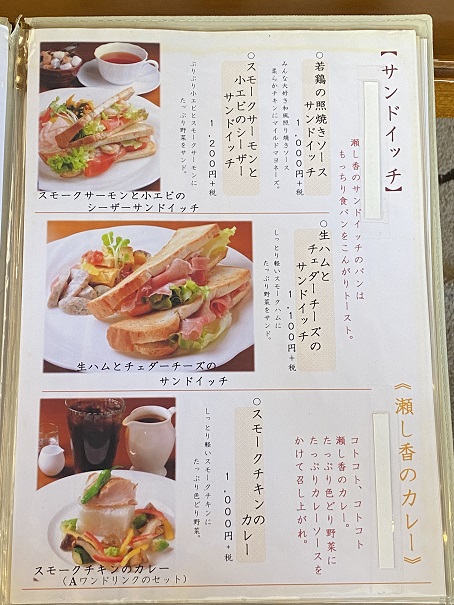 【サンドイッチ】
瀬し香のサンドイッチのパンは
もっちり食パンをこんがりトースト。
○若鶏の照焼きソース
サンドイッチ
1,000円+税
みんな大好き和風照り焼きソース
柔らかチキンにマイルドマヨネーズ。
○スモークサーモンと
小エビのシーザー
サンドイッチ
1,200円+税
ぷりぷり小エビとスモークサーモンに
たっぷり野菜をサンド。
スモークサーモンと小エビの
シーザーサンドイッチ
○生ハムと
チェダーチーズの
サンドイッチ
1,100円+税
しっとり軽いスモークハムに
たっぷり野菜をサンド。
生ハムとチェダーチーズの
サンドイッチ
《瀬し香のカレー》
コトコト、コトコト
瀬し香のカレー。
たっぷり色どり野菜に
たっぷりカレーソースを
かけて召し上がれ。
○スモークチキンの
カレー
1,000円+税
しっとり軽いスモークチキンに
たっぷり色どり野菜。
スモークチキンのカレー
(Aワンドリンクのセット)